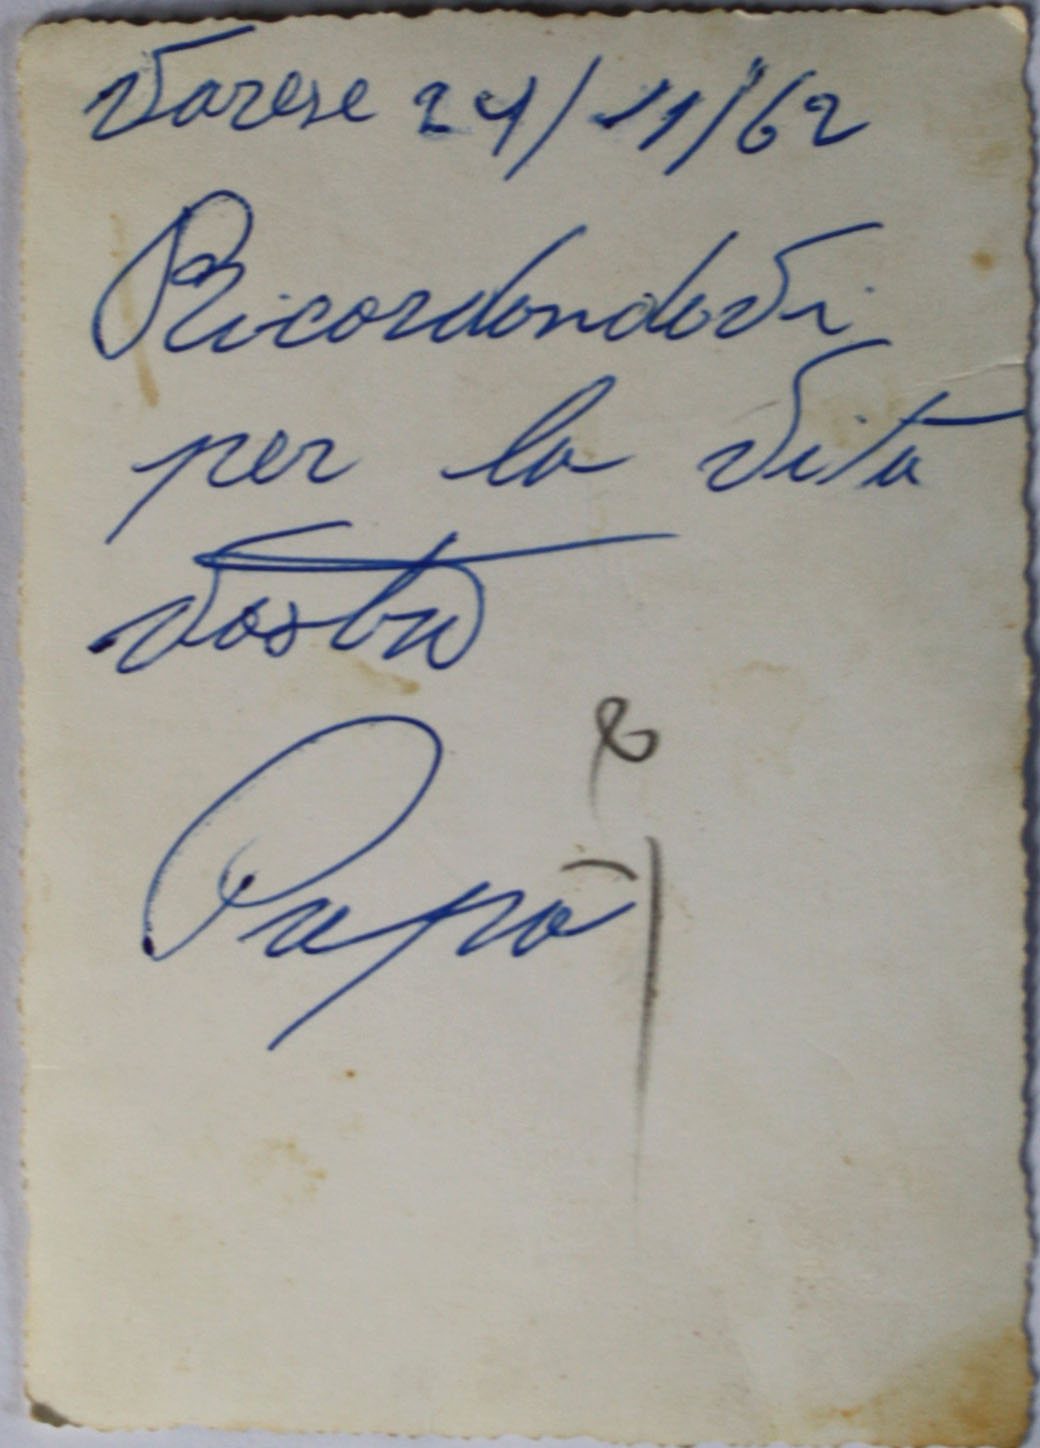 Varese 24/11/62
Ricordandovi
per la vita
vostro
Papà